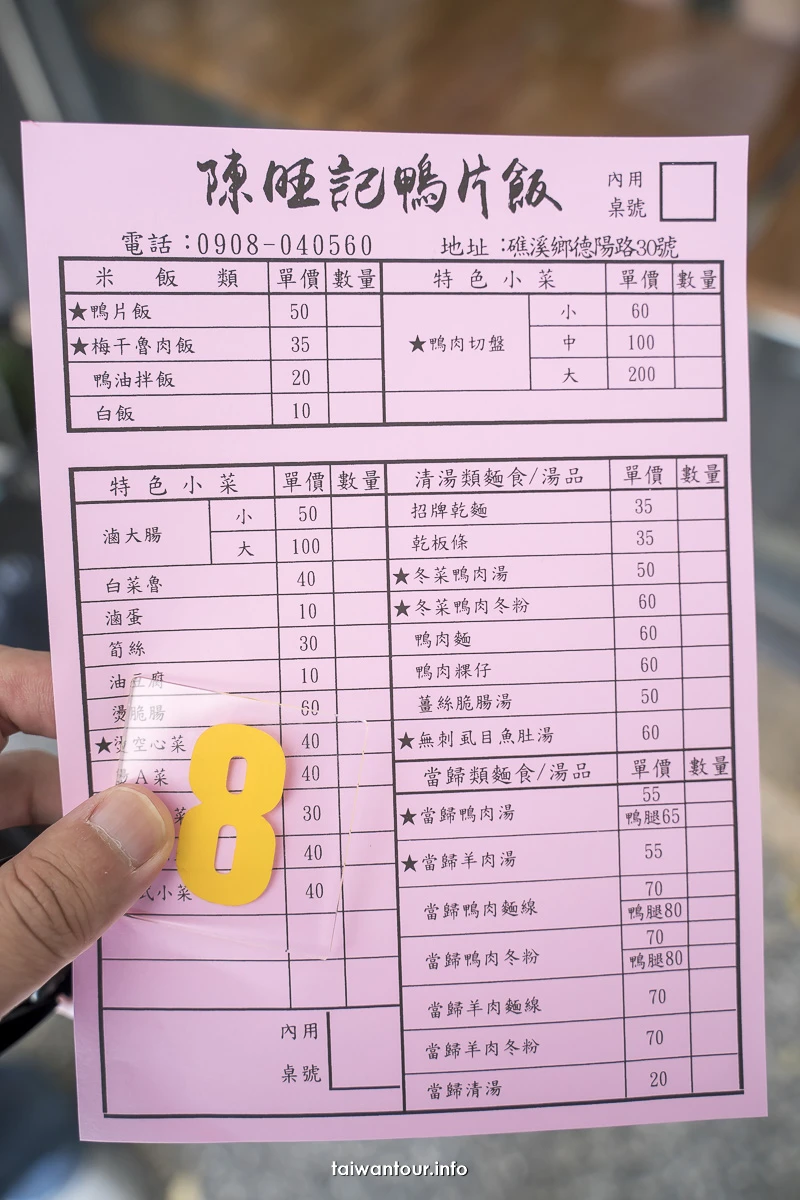 陳旺記鴨片飯
內用
桌號
電話:0908-040560 地址:礁溪鄉德陽路30號
米飯類 單價 數量
★鴨片飯 50
★梅干魯肉飯 35
鴨油拌飯 20
白飯 10
特色小菜 單價 數量
★鴨肉切盤 小 60
中 100
大 200
特色小菜 單價 數量
滷大腸 小 50
大 100
白菜魯 40
滷蛋 10
筍絲 30
油豆腐 10
燙脆腸 60
★燙空心菜 40
A菜 40
菜 30
40
式小菜 40
8
內用
桌號
清湯類麵食/湯品 單價 數量
招牌乾麵 35
乾板條 35
★冬菜鴨肉湯 50
★冬菜鴨肉冬粉 60
鴨肉麵 60
鴨肉粿仔 60
薑絲脆腸湯 50
★無刺虱目魚肚湯 60
當歸類麵食/湯品 單價 數量
★當歸鴨肉湯 55
鴨腿65
★當歸羊肉湯 55
當歸鴨肉麵線 70
鴨腿80
當歸鴨肉冬粉 70
鴨腿80
當歸羊肉麵線 70
當歸羊肉冬粉 70
當歸清湯 20
taiwantour.info